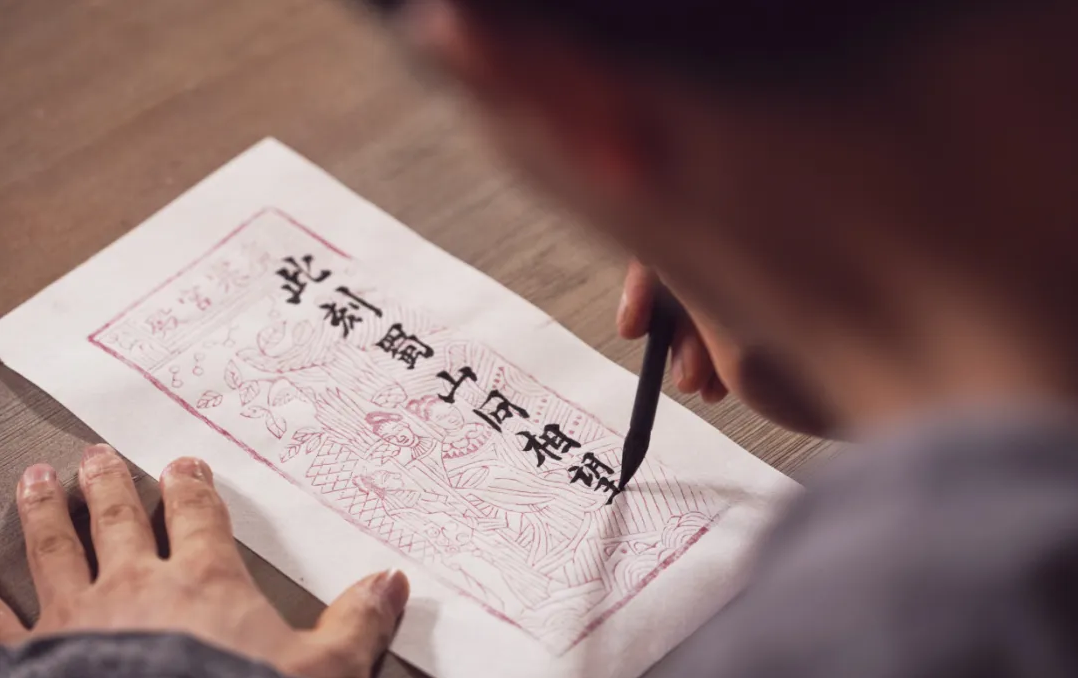 此刻蜀山同相望